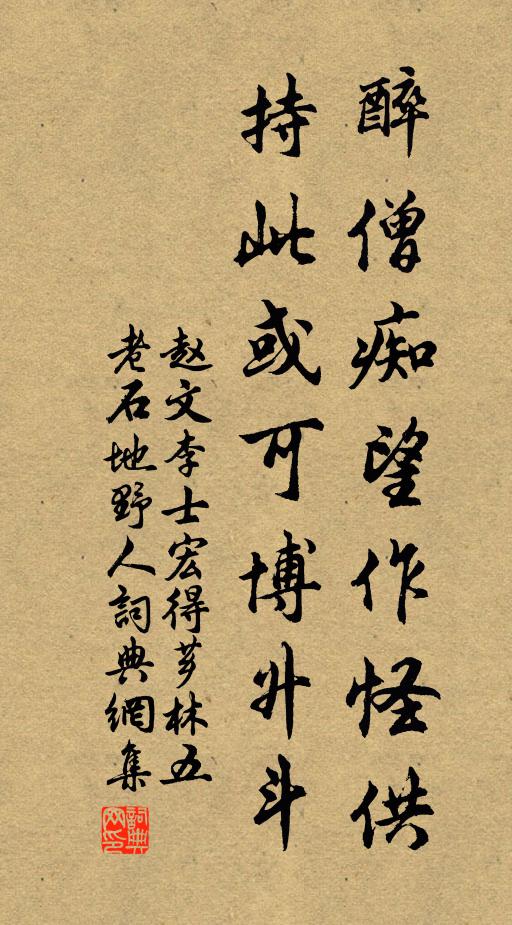 醉僧痴望作怪供
持此或可博升斗
赵文李士宏得芗林五
老石地野人詞典網集
詞典网印